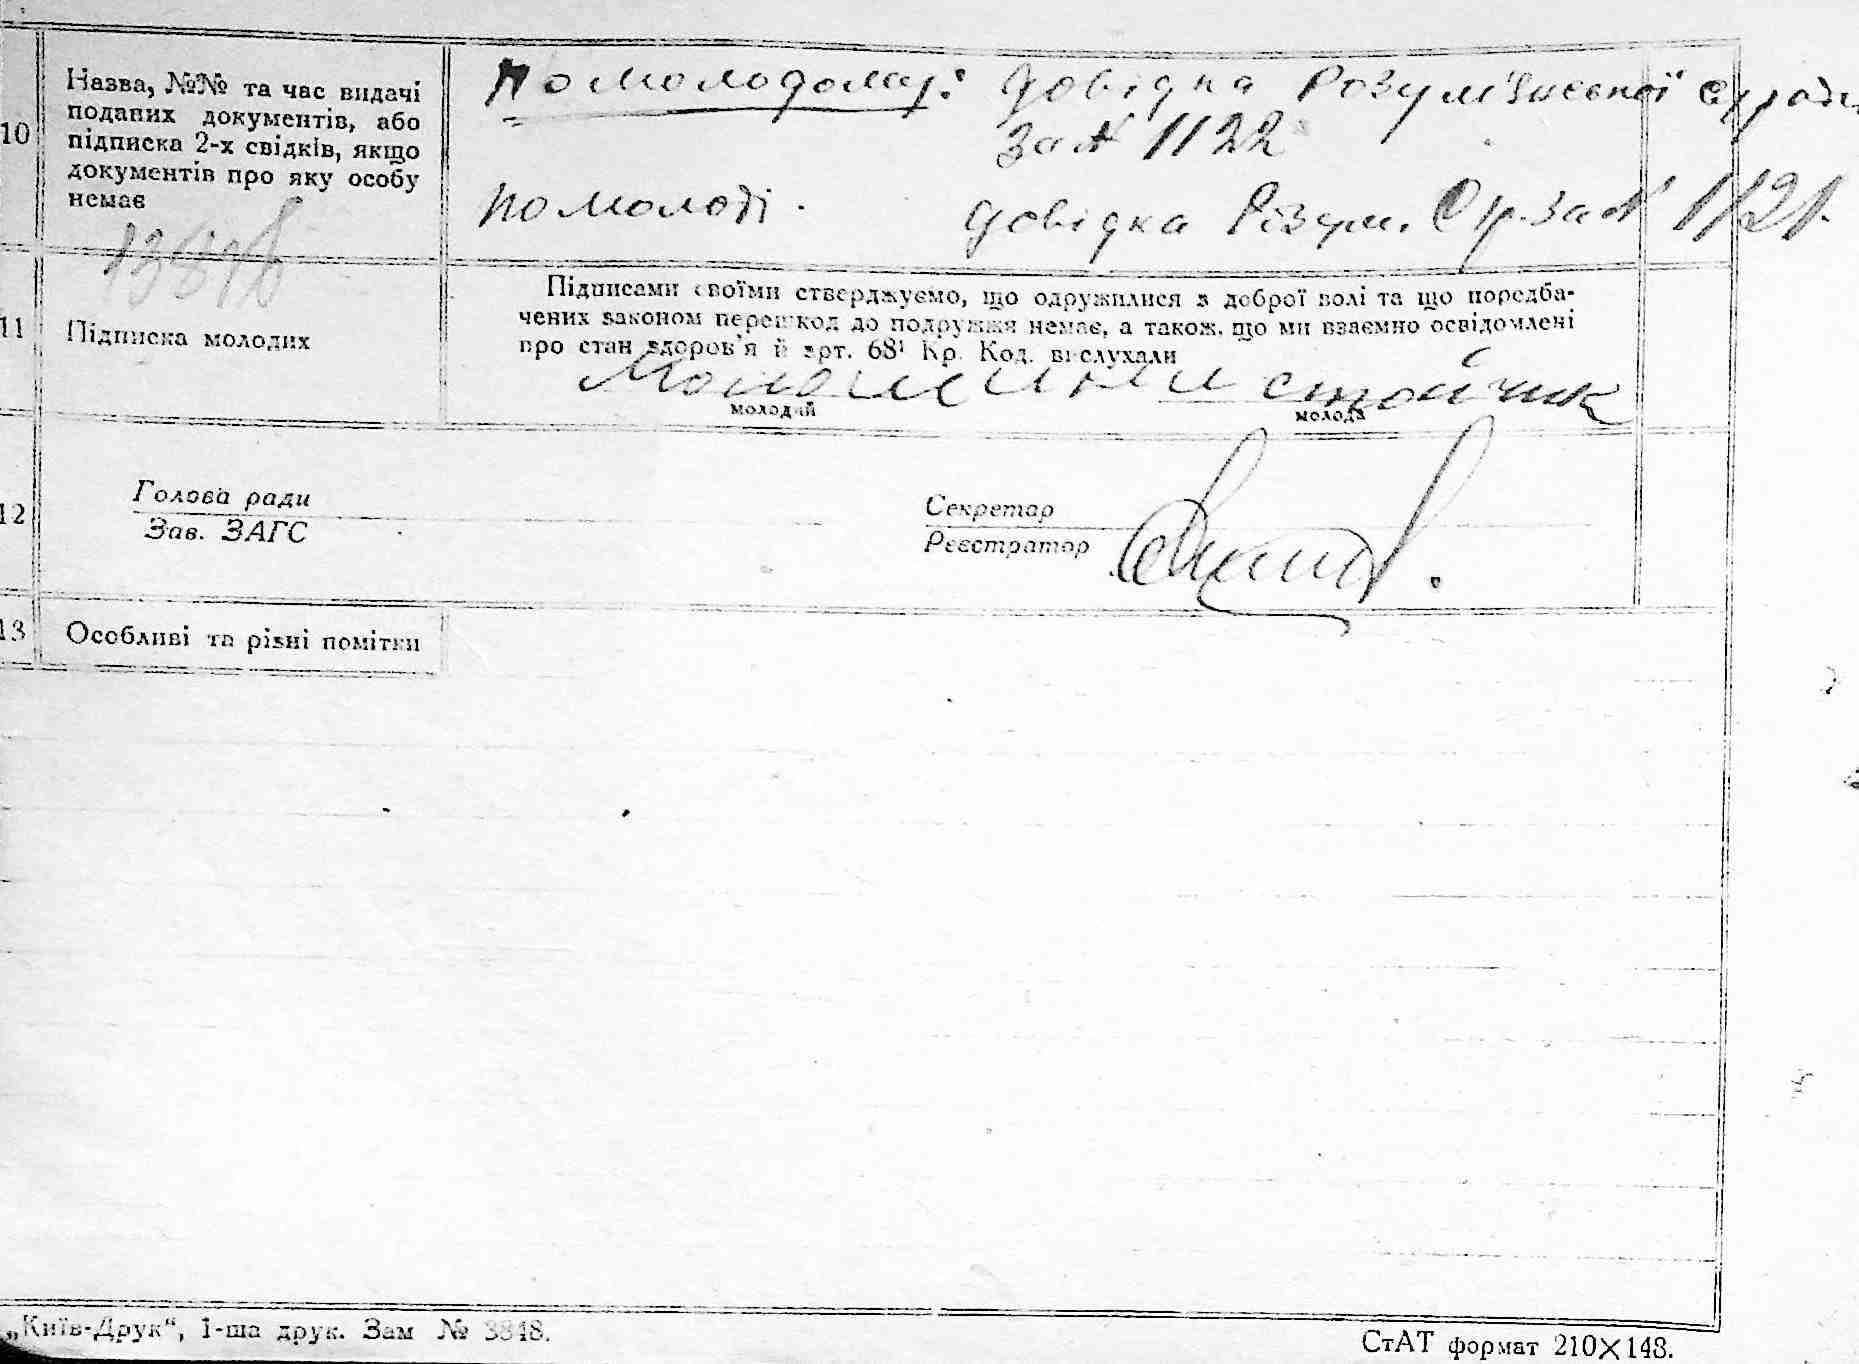 10
Назва, №№ та час видачі
поданих документів, або
підписка 2-х свідків, якщо
документів про яку особу
немає
по молодому: довідка
за № 1122
по молоді. довідка Розум. С/р. за № 1121.
11
Підписка молодих
Підписами своїми стверджуємо, що одружилися з доброї волі та що передба-
чених законом перешкод до подружжя немає, а також, що ми взаємно освідомлені
про стан здоров'я й арт. 68¹ Кр. Код. вислухали
стойчик
молодий молода
12
Голова ради
Зав. ЗАГС
Секретар
Реєстратор
13
Особливі та різні помітки
„Київ-Друк“, 1-ша друк. Зам № 3848.
СтАТ формат 210×148.